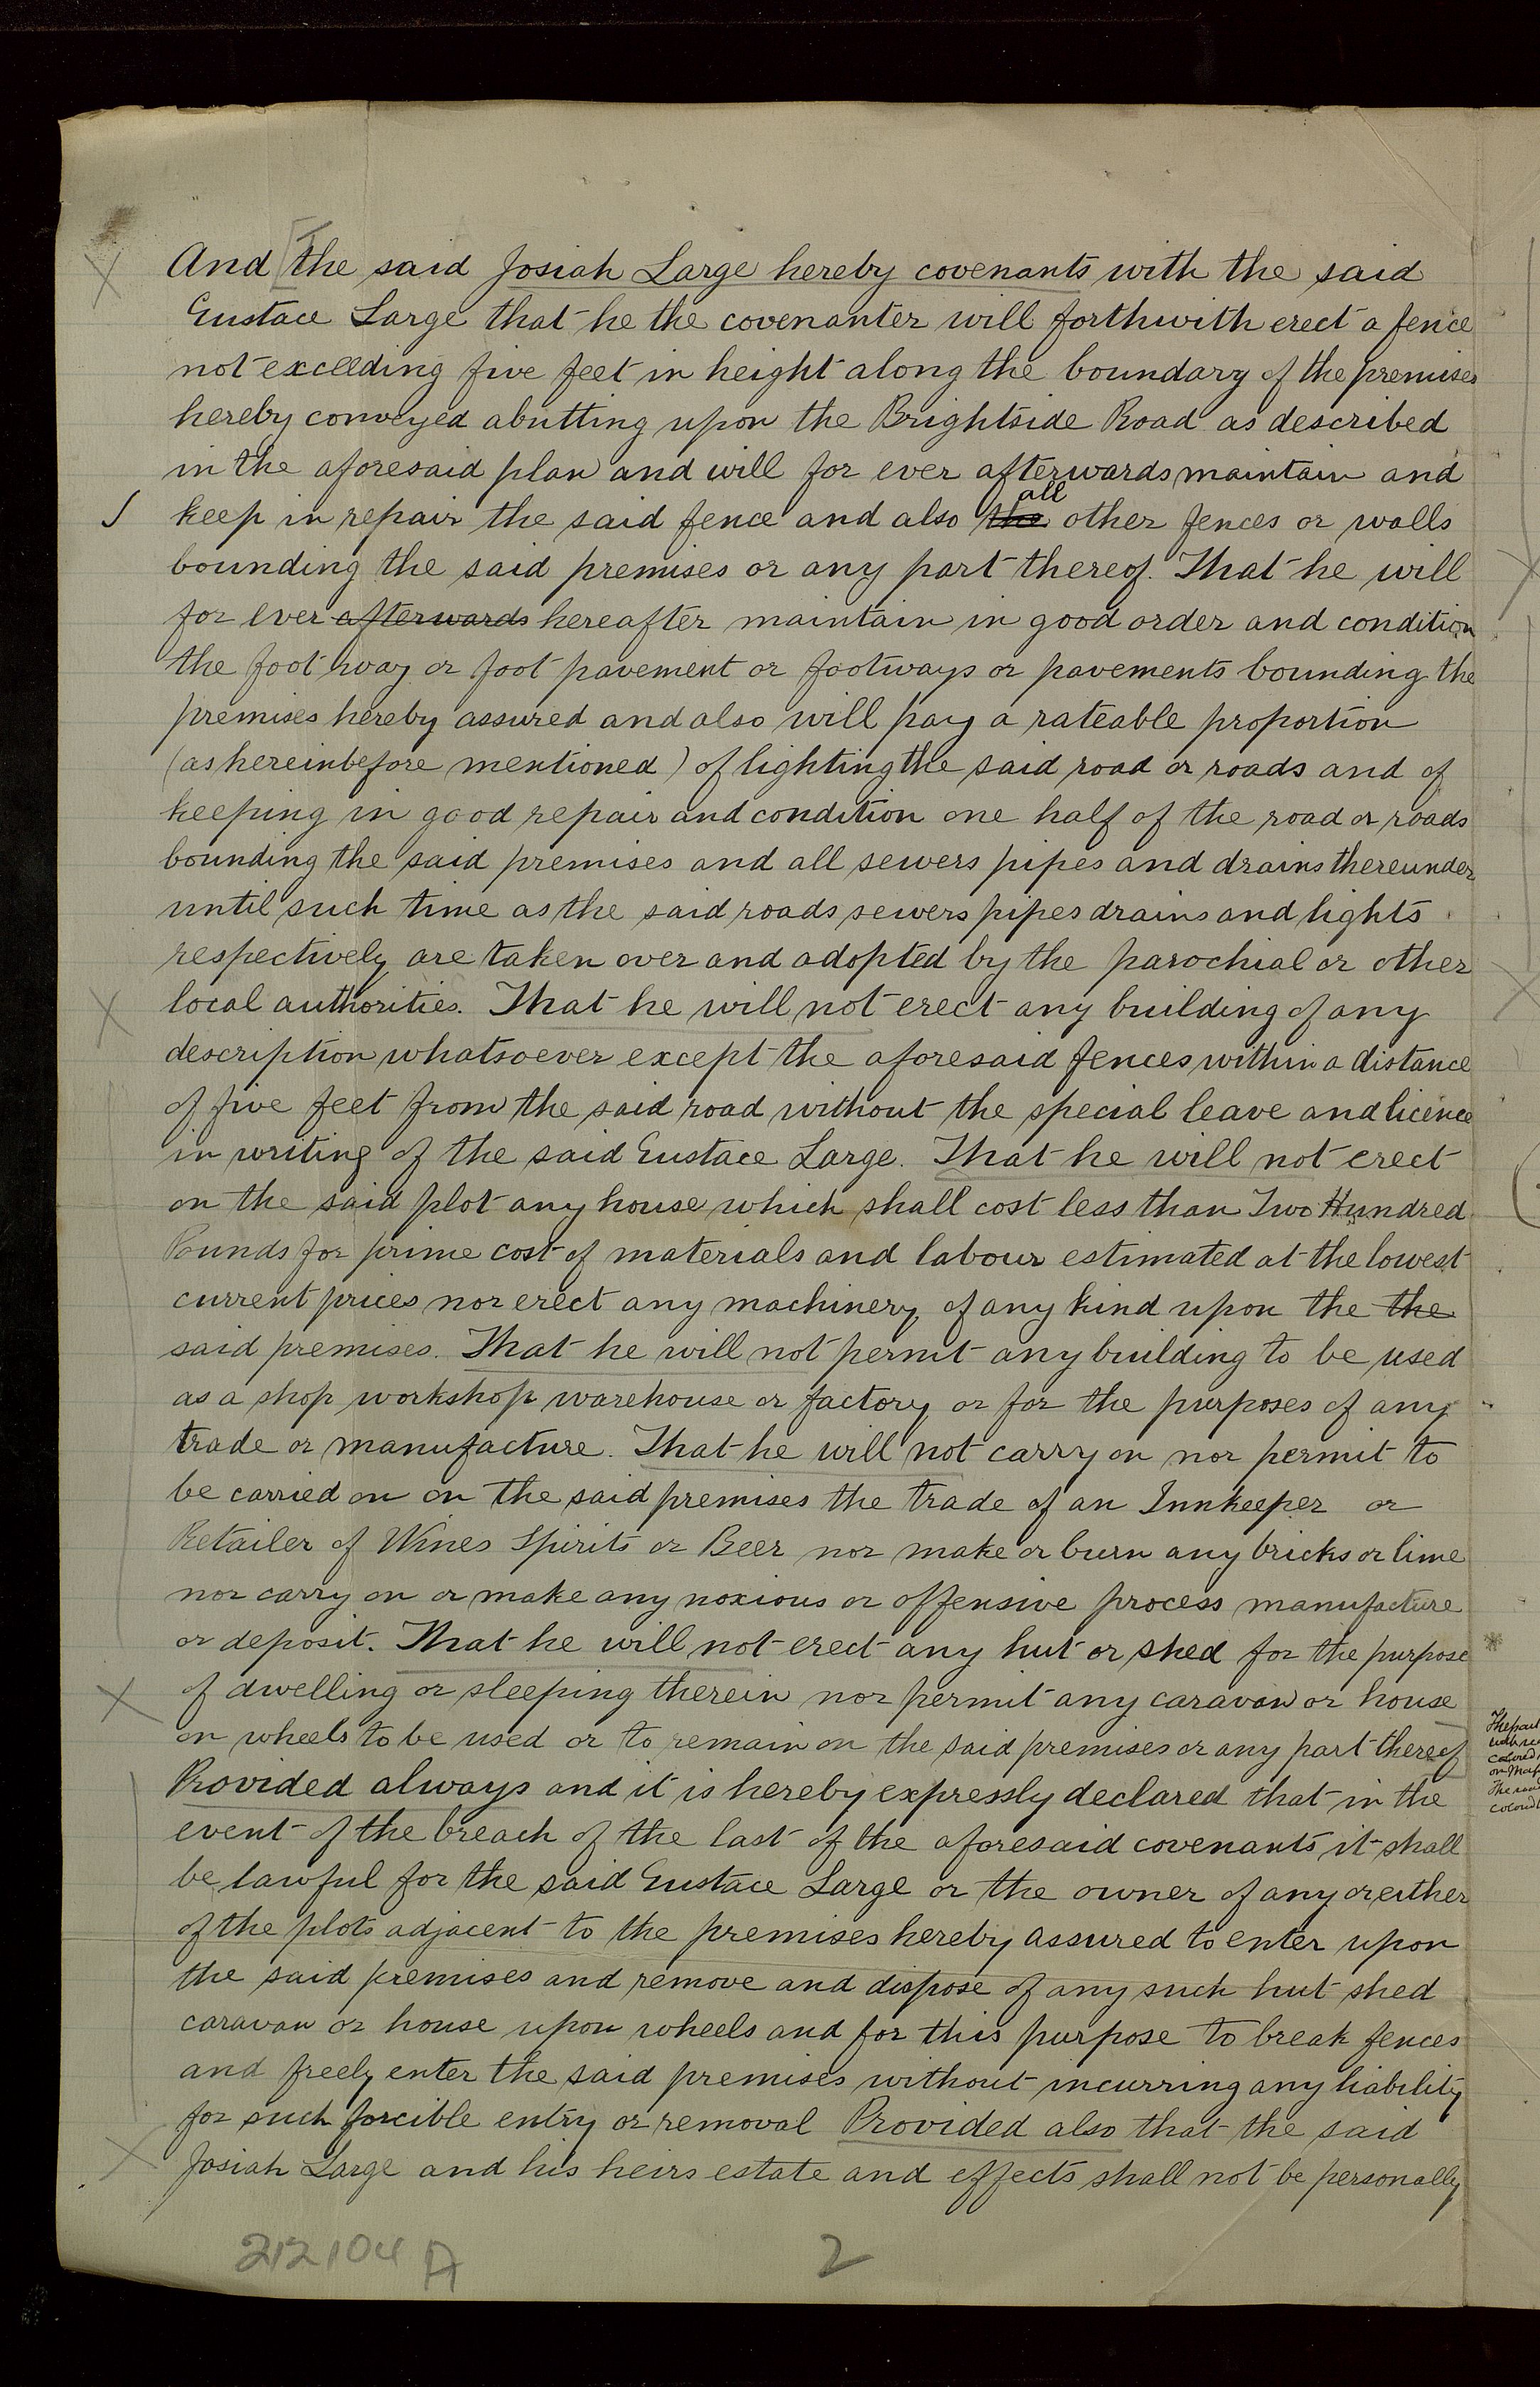 And the said Josiah Large hereby covenants with the said
Eustace Large that he the covenanter will forthwith erect a fence
not exceeding five feet in height along the boundary of the premises
hereby conveyed abutting upon the Brightside Road as described
in the aforesaid plan and will for ever afterwards maintain and
all
keep in repair the said fence and also the other fences or walls
bounding the said premises or any part thereof. That he will
for ever afterwards hereafter maintain in good order and condition
the foot way or foot pavement or footways or pavements bounding the
premises hereby assured and also will pay a rateable proportion
(as hereinbefore mentioned) of lighting the said road or roads and of
keeping in good repair and condition one half of the road or roads
bounding the said premises and all sewers pipes and drains thereunder
until such time as the said roads sewers pipes drains and lights
respectively are taken over and adopted by the parochial or other
local authorities. That he will not erect any building of any
description whatsoever except the aforesaid fences within a distance
of five feet from the said road without the special leave and licence
in writing of the said Eustace Large. That he will not erect
on the said plot any house which shall cost less than Two Hundred
Pounds for prime cost of materials and labour estimated at the lowest
current prices nor erect any machinery of any kind upon the the
said premises. That he will not permit any building to be used
as a shop workshop warehouse or factory or for the purposes of any
trade or manufacture. That he will not carry on nor permit to
be carried on on the said premises the trade of an Innkeeper or
Retailer of Wines Spirits or Beer nor make or burn any bricks or lime
nor carry on or make any noxious or offensive process manufacture
or deposit. That he will not erect any hut or shed for the purpose
of dwelling or sleeping therein nor permit any caravan or house
on wheels to be used or to remain on the said premises or any part thereof
Provided always and it is hereby expressly declared that in the
event of the breach of the last of the aforesaid covenants it shall
be lawful for the said Eustace Large or the owner of any or either
of the plots adjacent to the premises hereby assured to enter upon
the said premises and remove and dispose of any such hut shed
caravan or house upon wheels and for this purpose to break fences
and freely enter the said premises without incurring any liability
for such forcible entry or removal Provided also that the said
Josiah Large and his heirs estate and effects shall not be personally
212104 A 2